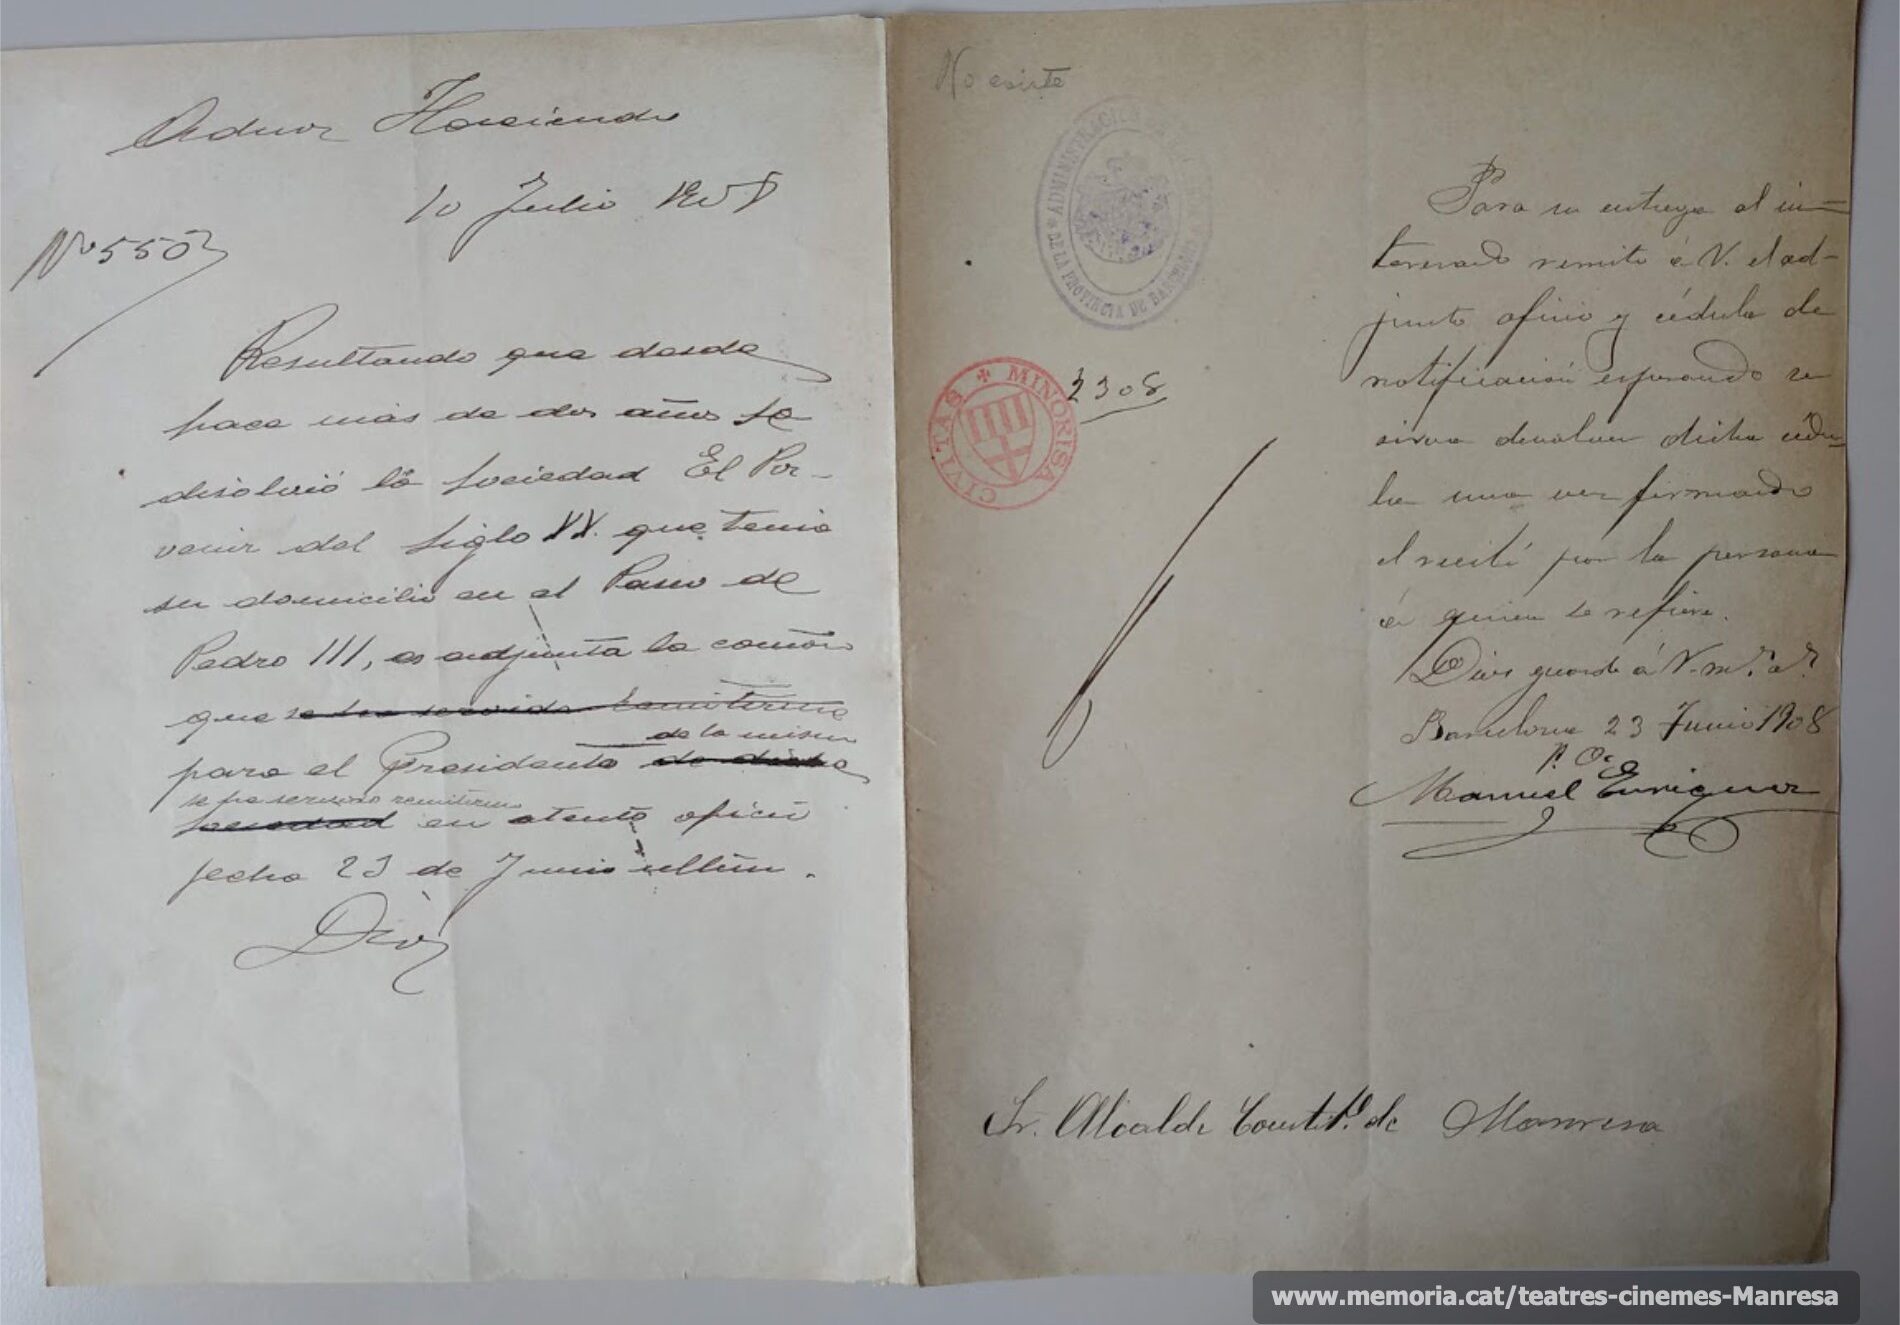 Admor Hacienda
10 Julio 1908
Nº 550
Resultando que desde
hace más de dos años se
disolvió la sociedad El Por-
venir del Siglo XX. que tenia
su domicilio en el Paseo de
Pedro III, es adjunta la comón
que se ha servido remitirme
de la misma
para el Presidente de dicha
se ha servido remitirme
sociedad en atento oficio
fecha 23 de Junio ulltim.
Dios
No existe
ADMINISTRACION DE
DE LA PROVINCIA DE BARCELONA
CIVITAS MINORISA
2308
Para su entrega al in-
teresado remito á V. el ad-
junto oficio y cédula de
notificación esperando se
sirva devolver dicha cédu-
la una vez firmado
el recibí por la persona
á quien se refiere.
Dios guarde á V. m.s a.s
Barcelona 23 Junio 1908
P. O.
Manuel Enriquez
Sr. Alcalde Constil. de Manresa
www.memoria.cat/teatres-cinemes-Manresa